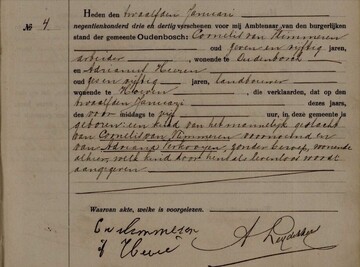 Heden den twaalfden Januari
№ 4
negentienhonderd drie en dertig verschenen voor mij Ambtenaar van den burgerlijken
stand der gemeente Oudenbosch: Cornelis van Nimmeren
oud zeven en vijftig jaren,
arbeider, wonende te Oudenbosch
en Adrianus
oud vijftig jaren, landbouwer
wonende te Hoeven, die verklaarden, dat op den
twaalfden Januari dezes jaars,
des voor middags te vijf ure, in deze gemeente is
geboren: een kind van het mannelijk geslacht
van Cornelis van Nimmeren voornoemd en
van Adriana Verkooyen, zonder beroep, wonende
alhier, welk kind door hen als levenloos wordt
aangegeven
Waarvan akte, welke is voorgelezen.